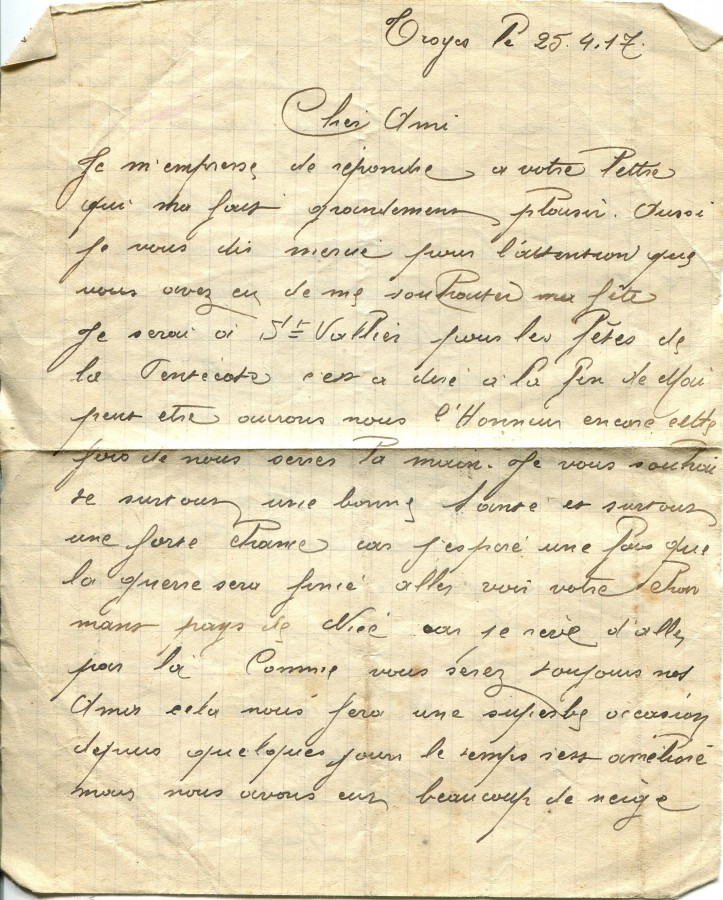 Troyes le 25.4.17.
Cher Ami
Je m'empresse de répondre a votre lettre
qui ma fait grandement plaisir. Aussi
je vous dis merci pour l'attention que
vous avez eu de me souhaiter ma fête
Je serai à St Vallier pour les fêtes de
la Pentecote c'est a diré á la fin de Mai
peut etre aurons nous l'Honneur encore cette
fois de nous serrer la main. Je vous souhai
te surtout une bonne santé et surtout
une forte chance car j'esparé une fois que
la guerre sera finié aller voir votre char
mant pays de Nicé car je révé d'aller
par là Comme vous serez toujours nos
Amis cela nous fera une superbe occasion
depuis quelques jours le temps s'est amélioré
mais nous avons eu beaucoup de neige